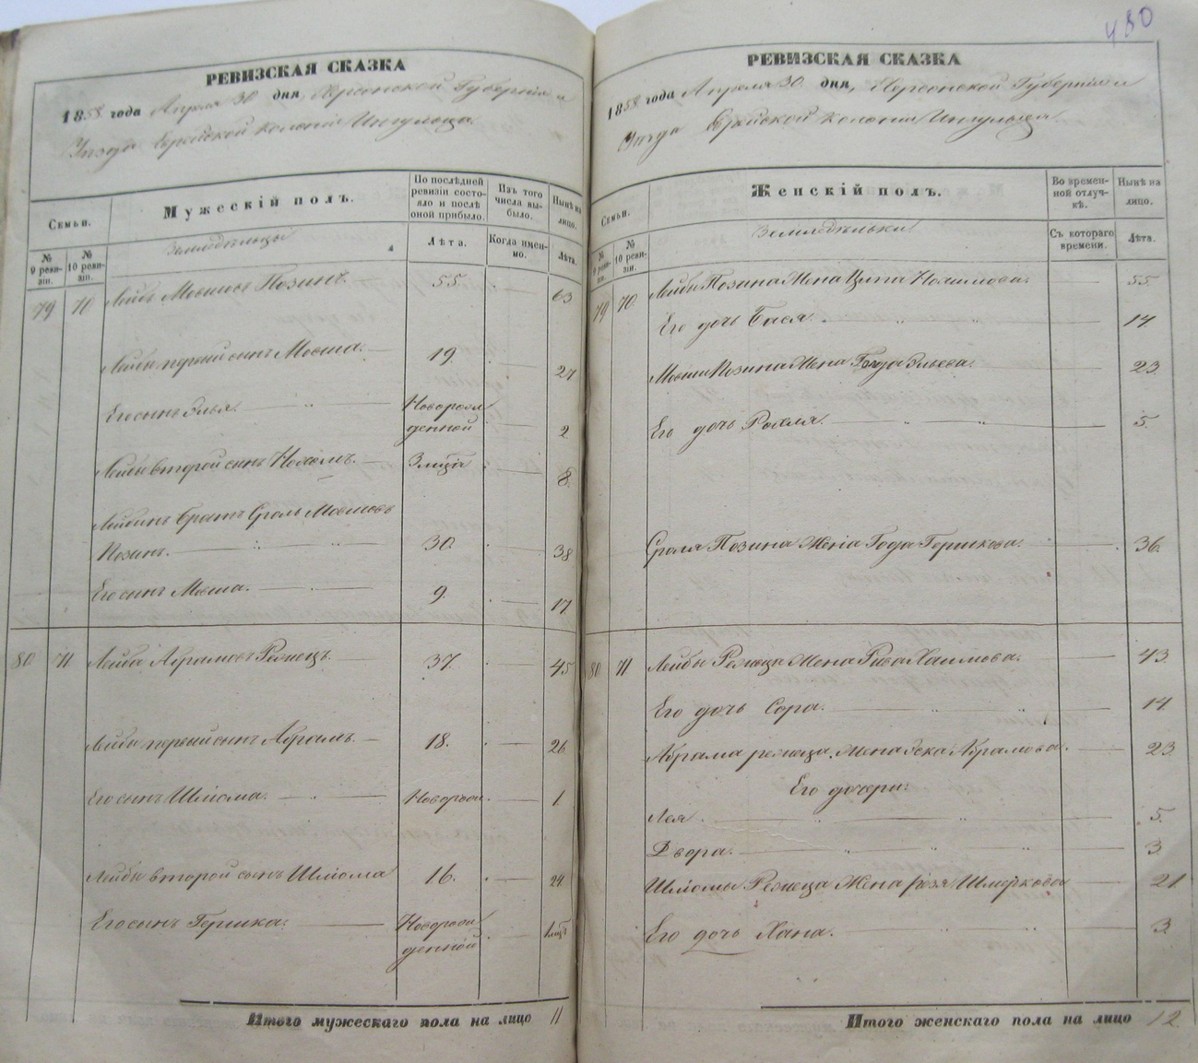 РЕВИЗСКАЯ СКАЗКА
1858 года Апреля 30 дня, Херсонской Губернии и
Уезда Еврейской колонии Ингульца
Семьи.
Мужескій полъ.
По послѣдней ревизіи состояло и послѣ оной прибыло.
Изъ того числа выбыло.
Нынѣ на лицо.
№ 9 ревизіи.
№ 10 ревизіи.
Земледельцы
Лѣта.
Когда именно.
Лѣта.
79 70 Лейба Мовшовъ Позинъ. 55. 63
Лейбы первый сынъ Мовша. 19 27
Его сынъ Элья. Новорожденной 2
Лейбы второй сынъ Нохимъ. 8
Лейбинъ братъ Сроль Мовшовъ
Позинъ. 30. 38
Его сынъ Мовша. 9. 17
80 71 Лейба Абрамовъ Резнецъ. 37. 45
Лейбы первый сынъ Абрамъ. 18. 26
Его сынъ Шліома. Новорож. 1.
Лейбы второй сынъ Шліома 16. 24
Его сынъ Гершка. Новорожденной
Итого мужескаго пола на лицо 11
480
РЕВИЗСКАЯ СКАЗКА
1858 года Апреля 30 дня, Херсонской Губернии и
Уезда Еврейской колонии Ингульца
Семьи.
Женскій полъ.
Во временной отлучкѣ.
Нынѣ на лицо.
№ 9 ревизіи.
№ 10 ревизіи.
Земледельки
Съ котораго времени.
Лѣта.
79 70 Лейбы Позина Жена Ципа Нохимова. 55.
Его дочь Бася. 14
Мовши Позина Жена Года Эльева. 23
Его дочь Рохля. 5.
Сроля Позина Жена Года Гершкова. 36.
80 71 Лейбы Резнеца Жена Рива Хаимова. 43.
Его дочь Сора. 14
Абрама резнеца Жена Абрамова. 23
Его дочери:
Лея. 5.
Двора. 3
Шліомы Резнеца Жена Шмеркова 21
Его дочь Хана. 3.
Итого женскаго пола на лицо 12